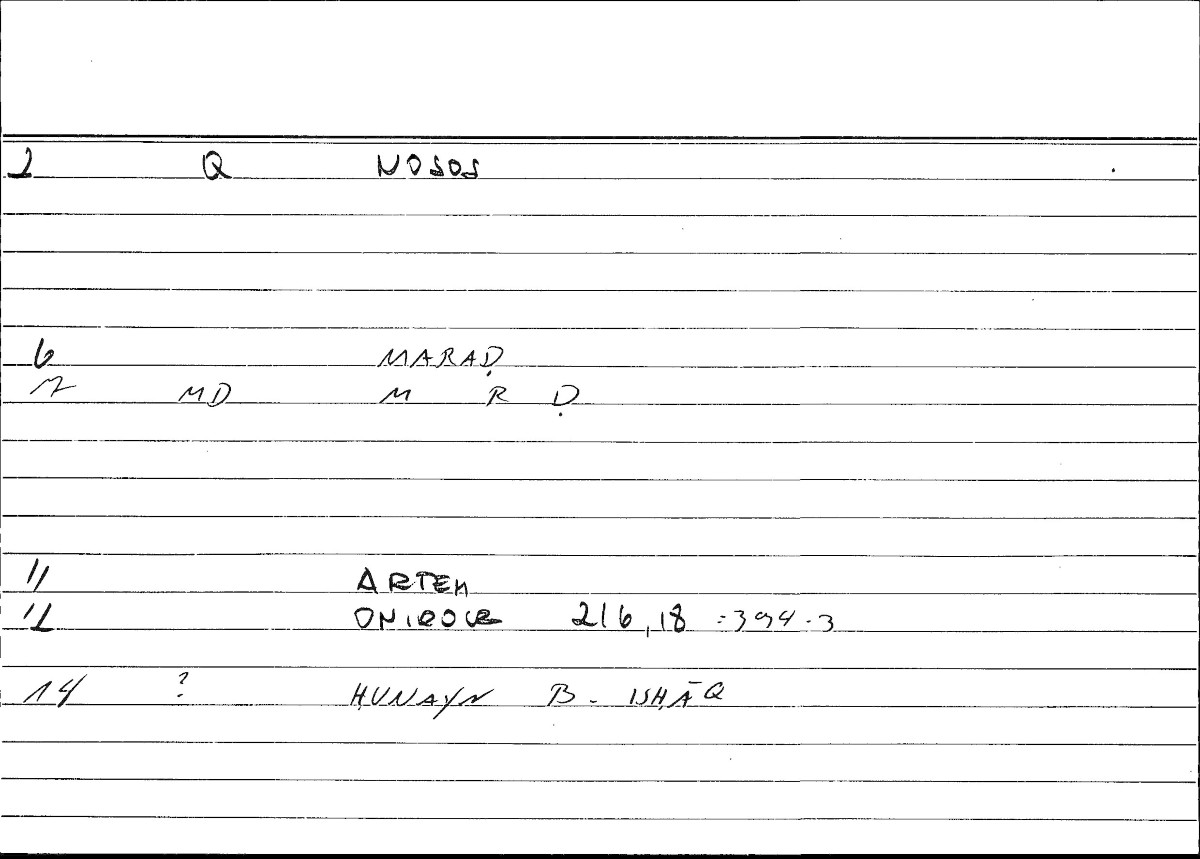 2 Q NOSOS
6 MARAḌ
7 MD M R Ḍ
11 ARTEM
12 ONIROCR 216,18 =394.3
14 ? ḤUNAYN B. ISḤĀQ